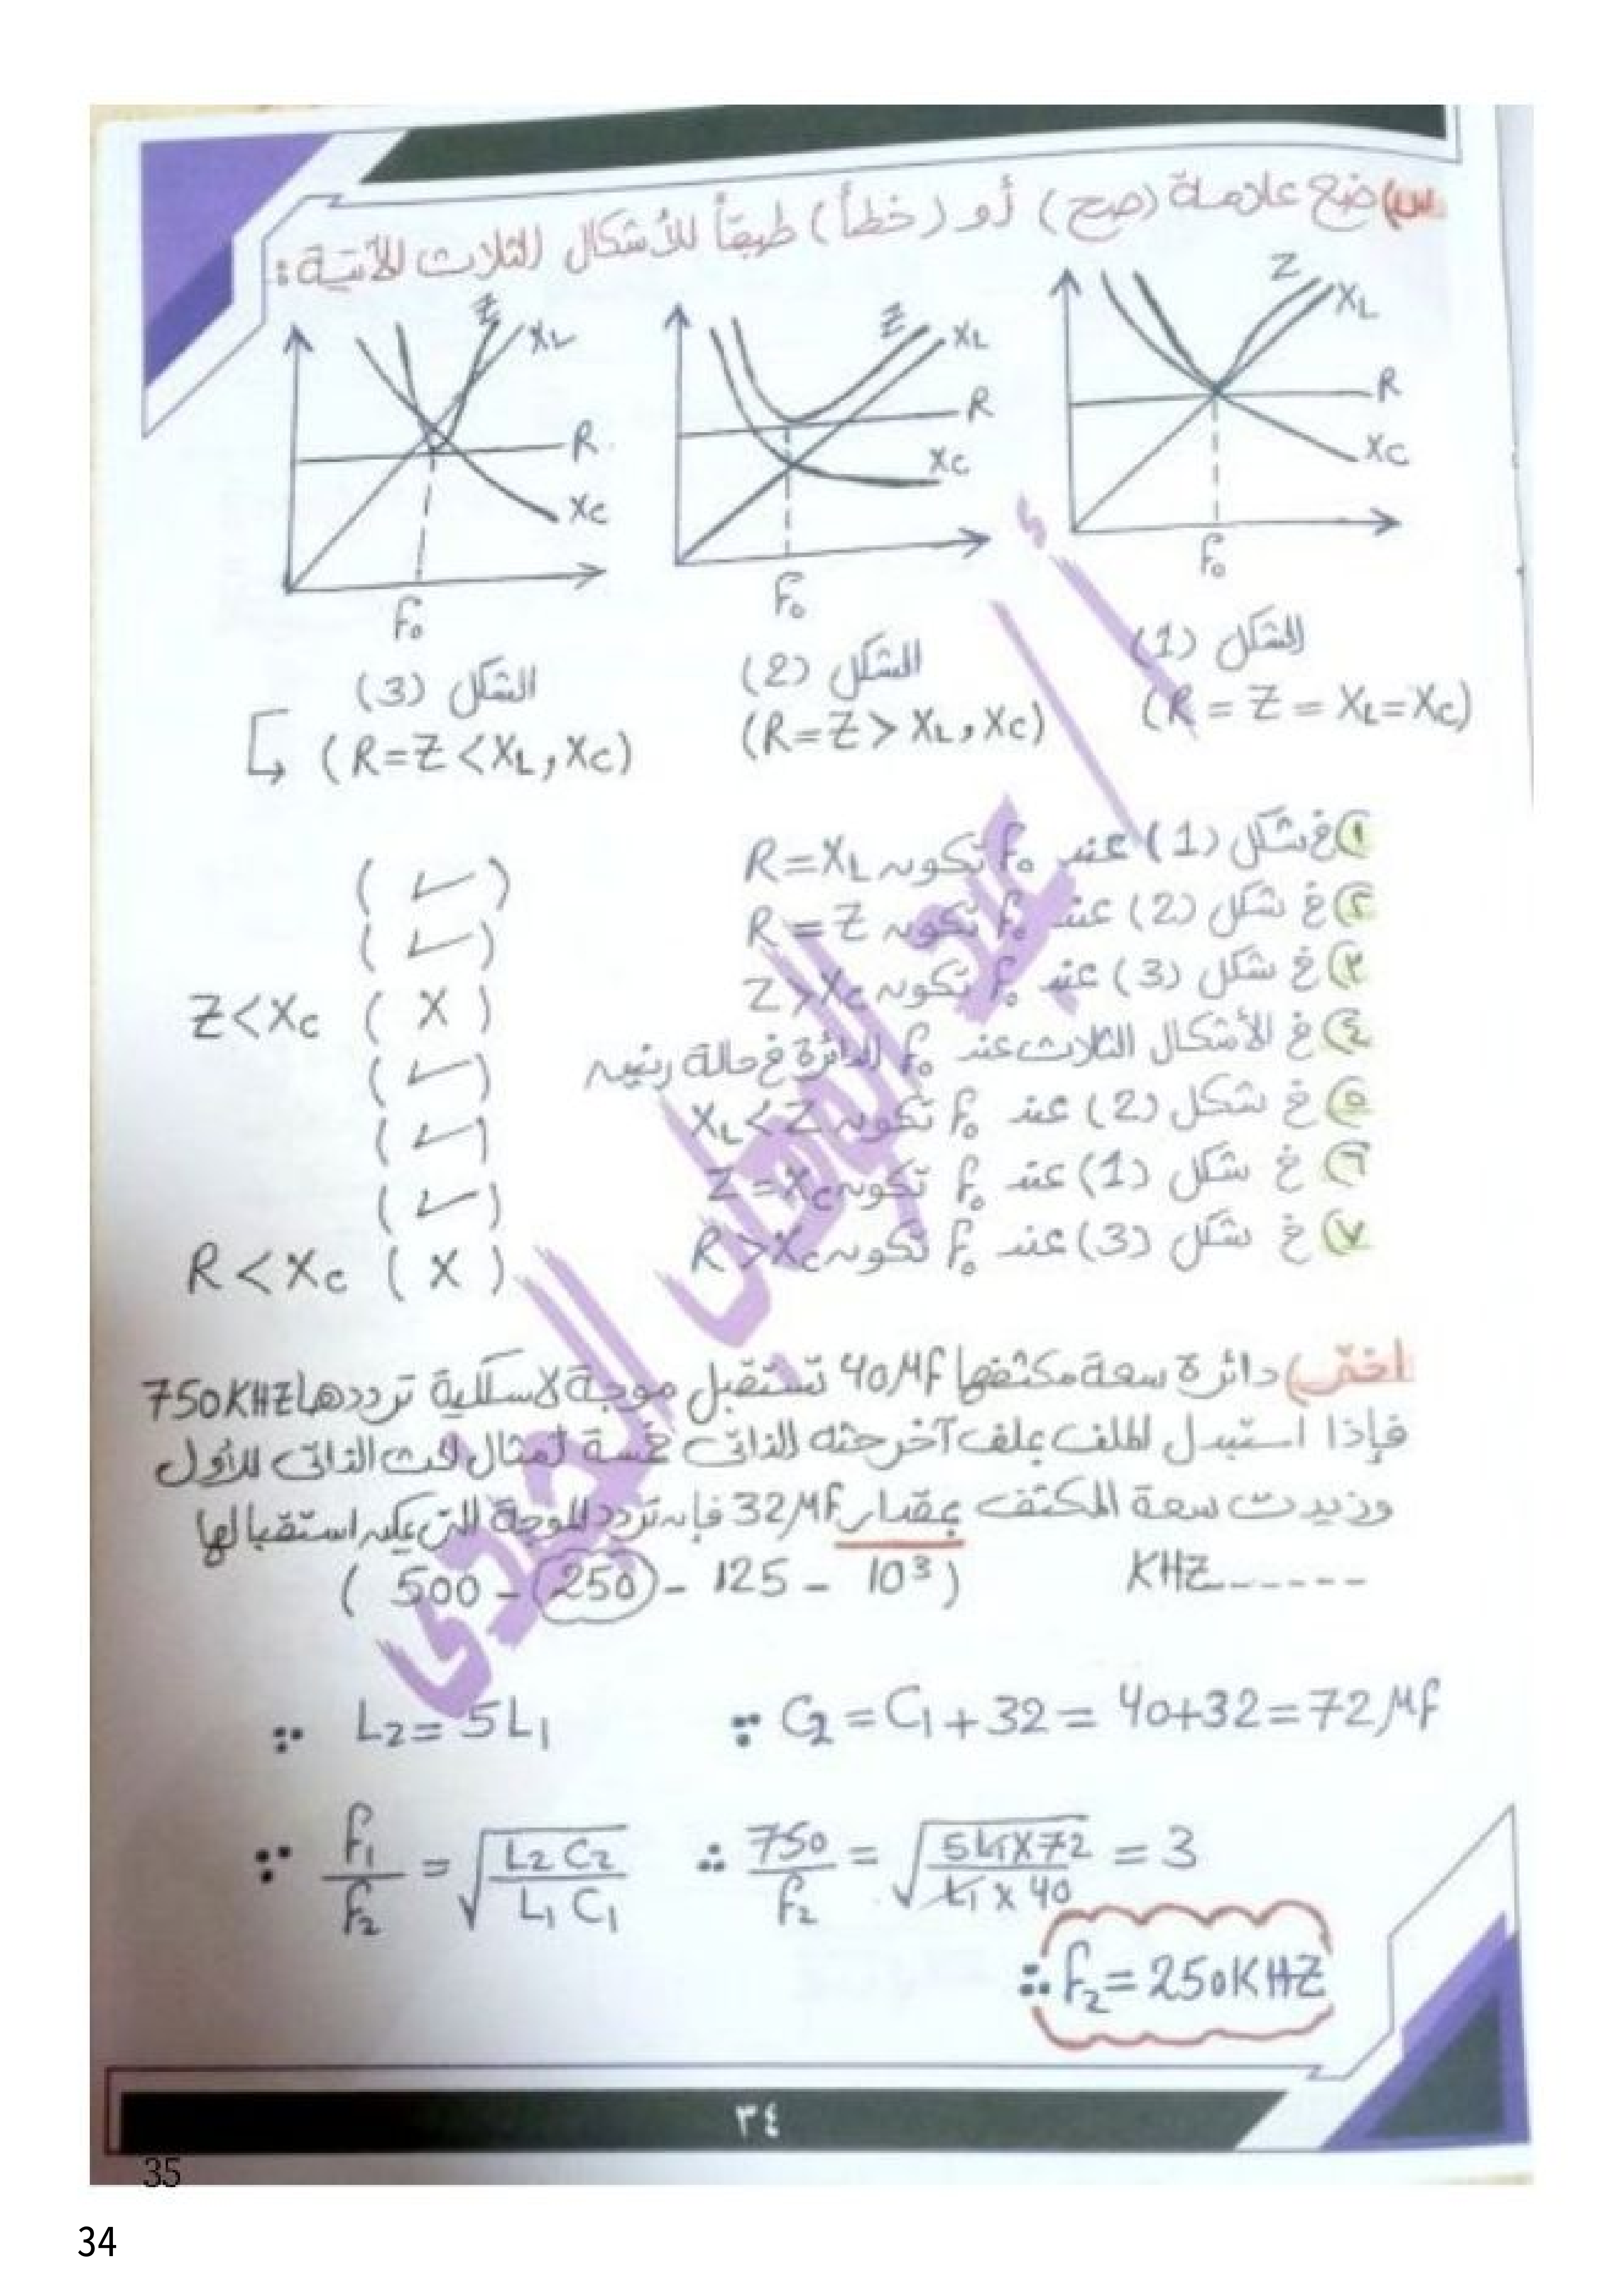 س) ضع علامة (صح) أو (خطأ) طبقاً للأشكال الثلاث الآتية:
Z XL R Xc f₀
Z XL R Xc f₀
Z XL R Xc f₀
الشكل (1)
(R = Z = XL = Xc)
الشكل (2)
(R = Z > XL , Xc)
الشكل (3)
(R = Z < XL , Xc)
١) في شكل (1) عند f₀ تكون R = XL (✓)
٢) في شكل (2) عند f₀ تكون R = Z (✓)
٣) في شكل (3) عند f₀ تكون Z > Xc (X) Z < Xc
٤) في الأشكال الثلاث عند f₀ الدائرة في حالة رنين (✓)
٥) في شكل (2) عند f₀ تكون XL < Z (✓)
٦) في شكل (1) عند f₀ تكون Z = Xc (✓)
٧) في شكل (3) عند f₀ تكون R > Xc (X) R < Xc
اختر) دائرة سعة مكثفها 40 μF تستقبل موجة لاسلكية ترددها 750 KHZ
فإذا استبدل الملف بملف آخر حثه الذاتى خمسة أمثال الحث الذاتى للأول
وزيدت سعة المكثف بمقدار 32 μF فإن تردد الموجة التى يمكن استقبالها
------ KHZ ( 500 - 250 - 125 - 10³ )
∵ C₂ = C₁ + 32 = 40 + 32 = 72 μF ∵ L₂ = 5 L₁
∵ f₁/f₂ = √(L₂ C₂ / L₁ C₁) ∴ 750/f₂ = √(5 L₁ x 72 / L₁ x 40) = 3
∴ f₂ = 250 KHZ
٣٤
35
34